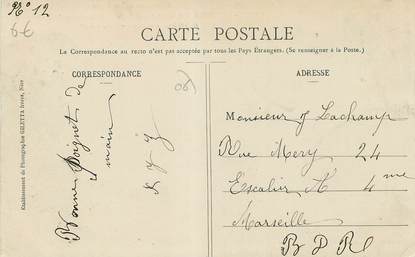 N° 12
6€
CARTE POSTALE
La Correspondance au recto n'est pas acceptée par tous les Pays Étrangers. (Se renseigner à la Poste.)
CORRESPONDANCE
ADRESSE
Etablissement de Photographie GILETTA frères, Nice
Bonne Poignet de
main
(06)
Monsieur J Lachamp
Rue Mery 24
Escalier A 4me
Marseille
B D R